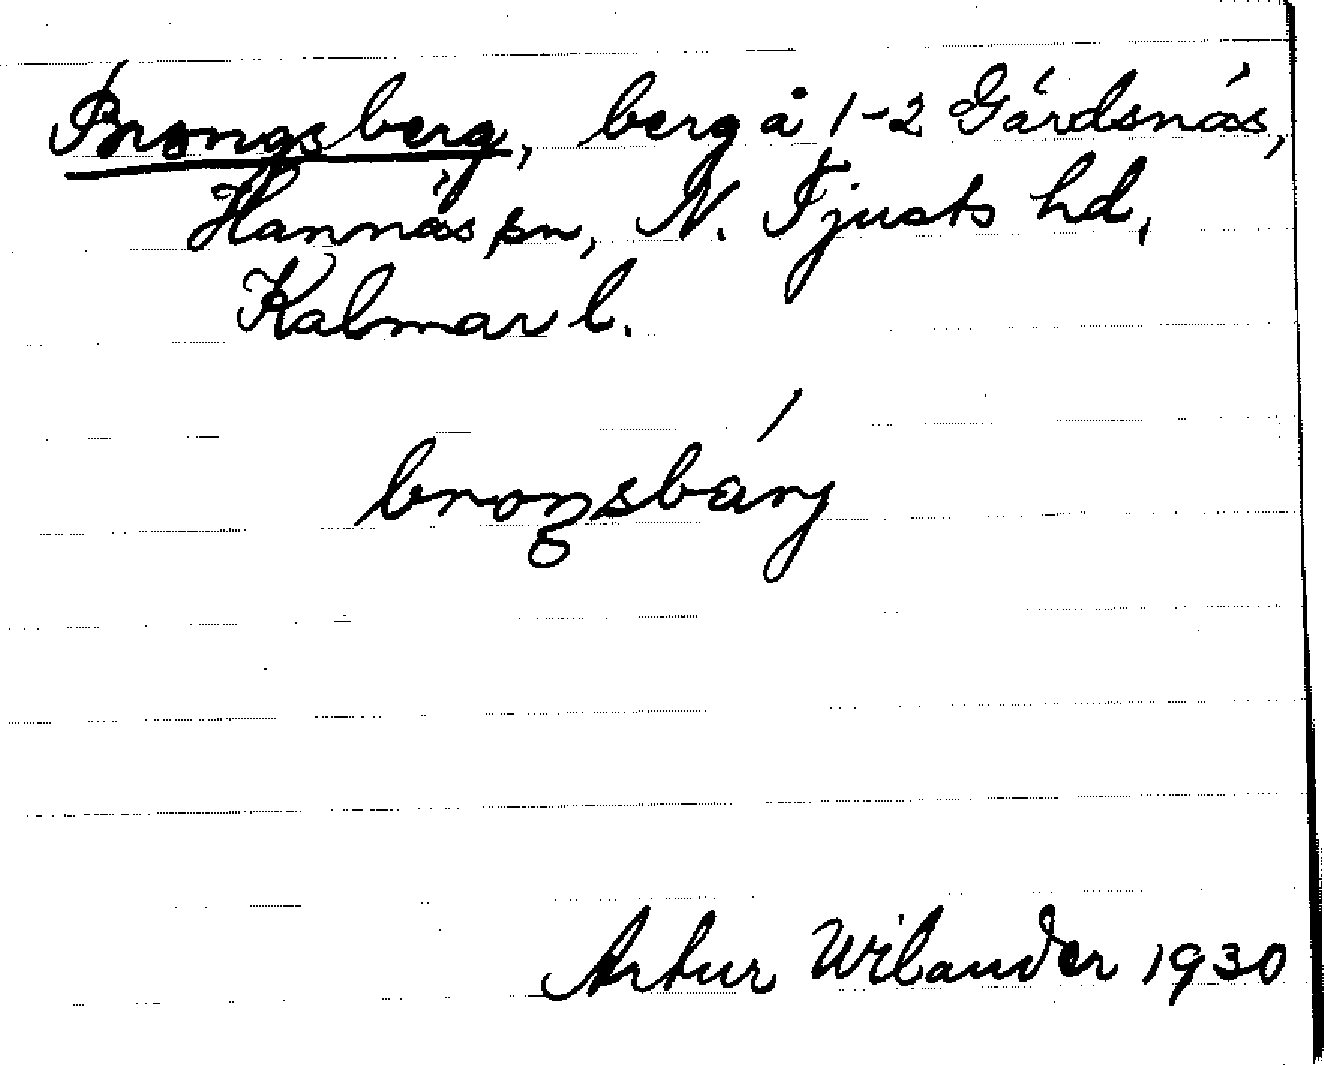 Brongsberg, berg å 1-2 Gärdsnäs,
Hannäs sn, N. Tjusts hd,
Kalmar l.
broŋsbárj
Artur Wilander 1930